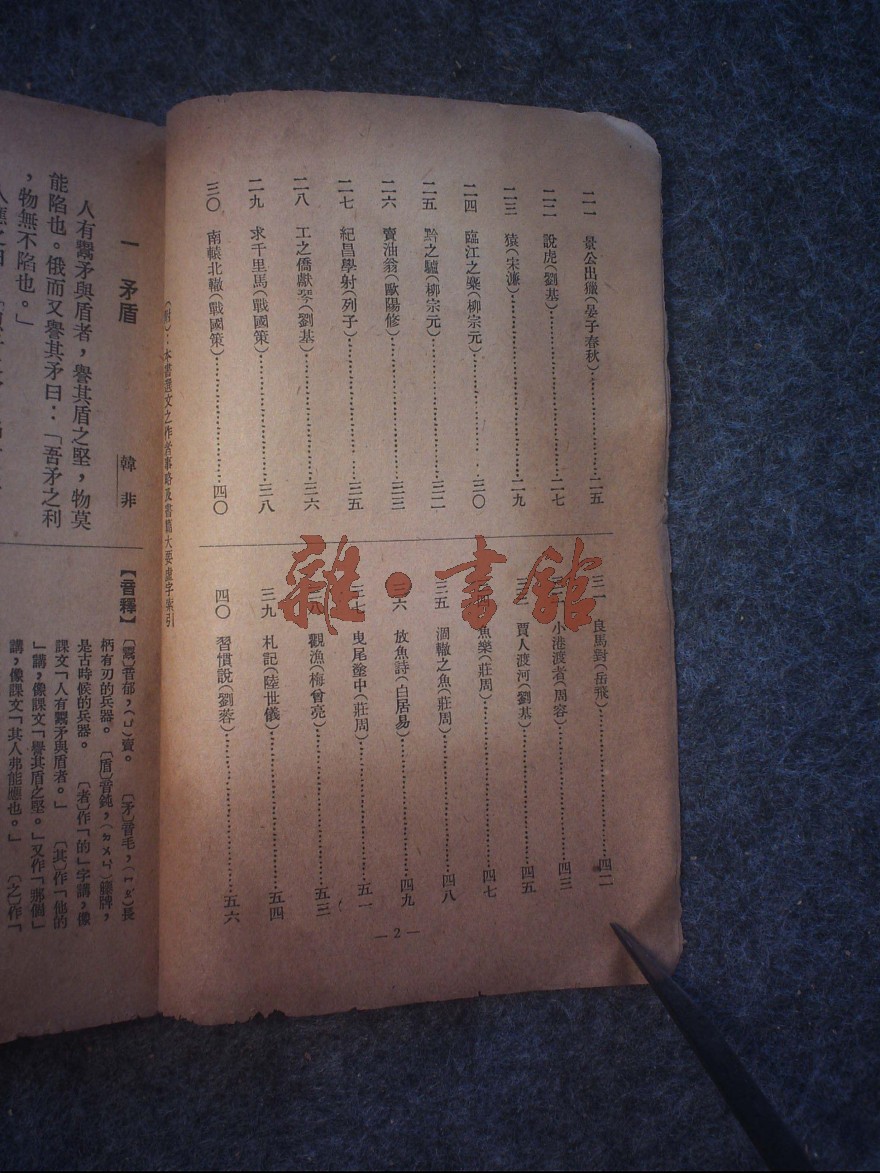 二一　景公出獵（晏子春秋）…………二五
二二　說虎（劉基）…………二七
二三　猿（宋濂）…………二九
二四　臨江之麋（柳宗元）…………三〇
二五　黔之驢（柳宗元）…………三二
二六　賣油翁（歐陽修）…………三三
二七　紀昌學射（列子）…………三五
二八　工之僑獻琴（劉基）…………三六
二九　求千里馬（戰國策）…………三八
三〇　南轅北轍（戰國策）…………四〇
三一　良馬對（岳飛）…………四二
小港渡者（周容）…………四三
賈人渡河（劉基）…………四五
魚樂（莊周）…………四七
三五　涸轍之魚（莊周）…………四八
三六　放魚詩（白居易）…………四九
曳尾塗中（莊周）…………五一
觀漁（梅曾亮）…………五三
三九　札記（陸世儀）…………五四
四〇　習慣說（劉蓉）…………五六
（附）：本書選文之作者事略及書篇大要虛字索引
— 2 —
雜·書館
一　矛盾
韓非
人有鬻矛與盾者，譽其盾之堅，物莫
能陷也。俄而又譽其矛曰：「吾矛之利
，物無不陷也。」
【音釋】
〔鬻〕音郁，（ㄩ）賣。　〔矛〕音毛，（ㄇㄠ）長
柄有刃的兵器。　〔盾〕音鈍，（ㄉㄨㄣ）籐牌，
是古時候的兵器。　〔者〕作「的」字講，像
課文「人有鬻矛與盾者。」　〔其〕作「他的
」講，像課文「譽其盾之堅。」又作「那個」
講，像課文「其人弗能應也。」　〔之〕作「